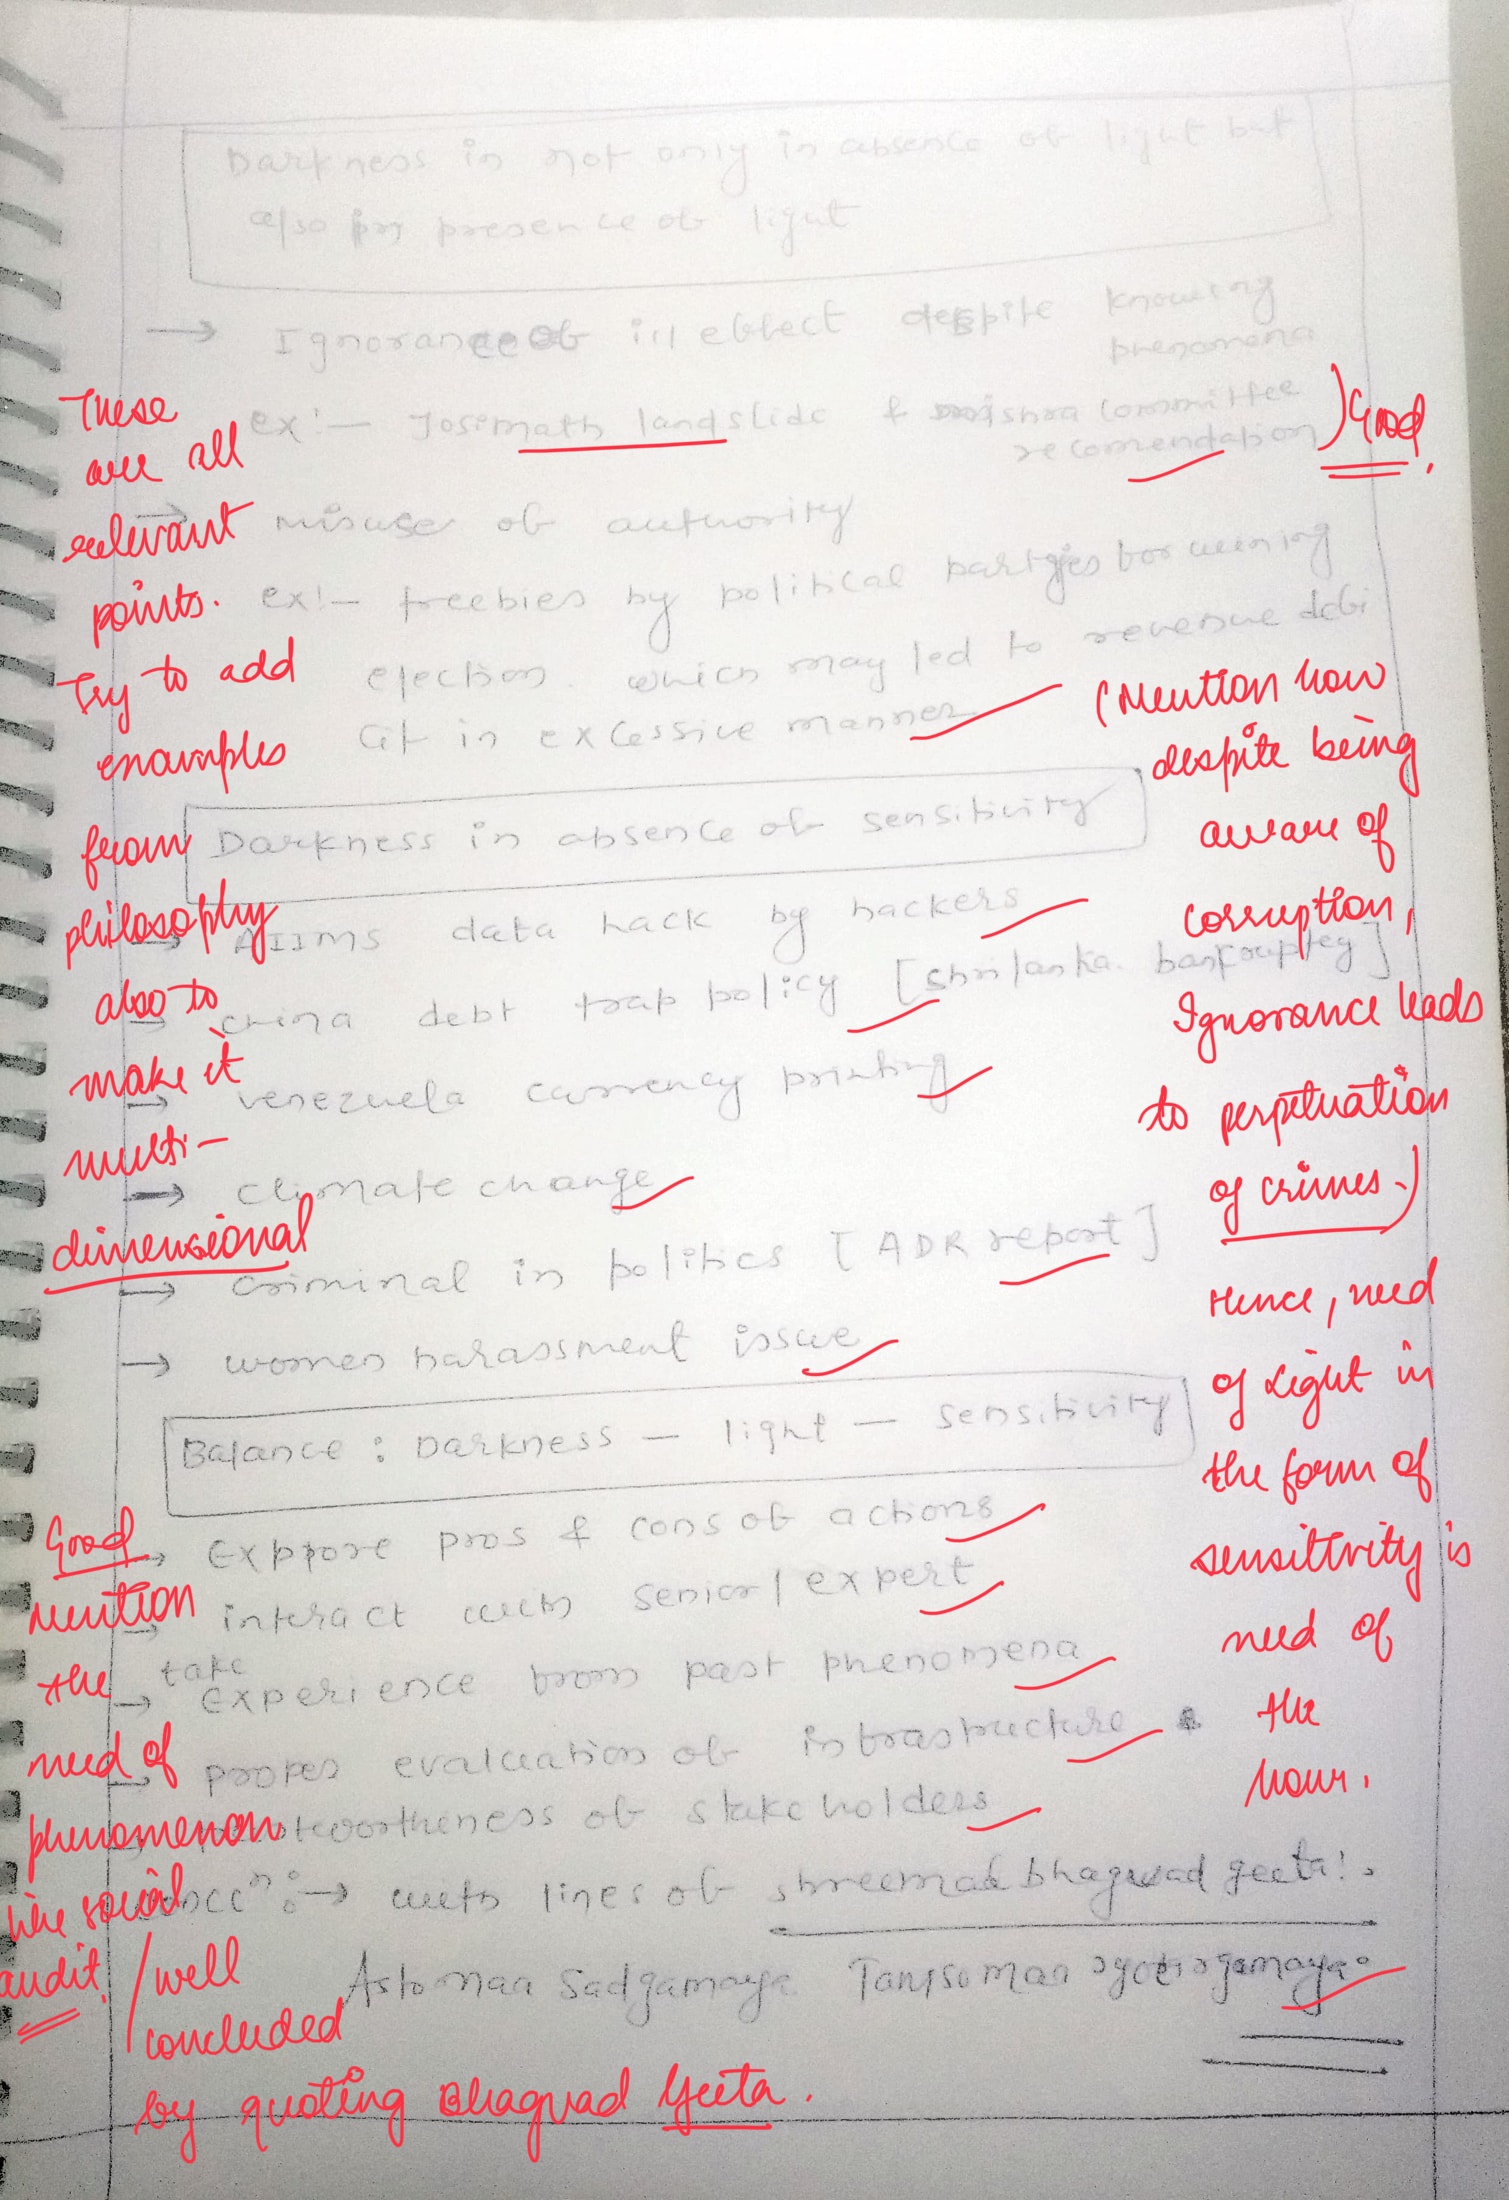 Darkness in not only in absence of light but
also for presence of light
→ Ignorance of ill effect despite knowing
phenomena
ex:- Josimath landslide & mishra committee
recomendation
) Good.
→ misuse of authority
ex:- freebies by political parties for wening
election. which may led to revenue defi
cit in excessive manner
Darkness in absence of sensitivity
→ AIIMS data hack by hackers
→ china debt trap policy [Shrilanka. bankrouptcy]
→ venezuela currency printing
→ climate change
→ criminal in politics [ADR report]
→ women harassment issue
Balance : Darkness – light – sensitivity
→ Exppore pros & cons of actions
→ interact with senior/expert
→ take experience from past phenomena
→ proper evaluation of infrastructure
→ trustwortheness of stakeholders
concn : → with lines of shreemad bhagwad geeta!.
Asto maa Sadgamaya
These
are all
relevant
points.
Try to add
examples
from
philosophy
also to
make it
multi-
dimensional
(Mention how
despite being
aware of
corruption,
Ignorance leads
to perpetuation
of crimes.)
Hence, need
of light in
the form of
sensittvity is
need of
the
hour.
Good
mention
the
need of
phenomenon
like social
audit.
/well
concluded
by quoting Bhagvad Geeta.